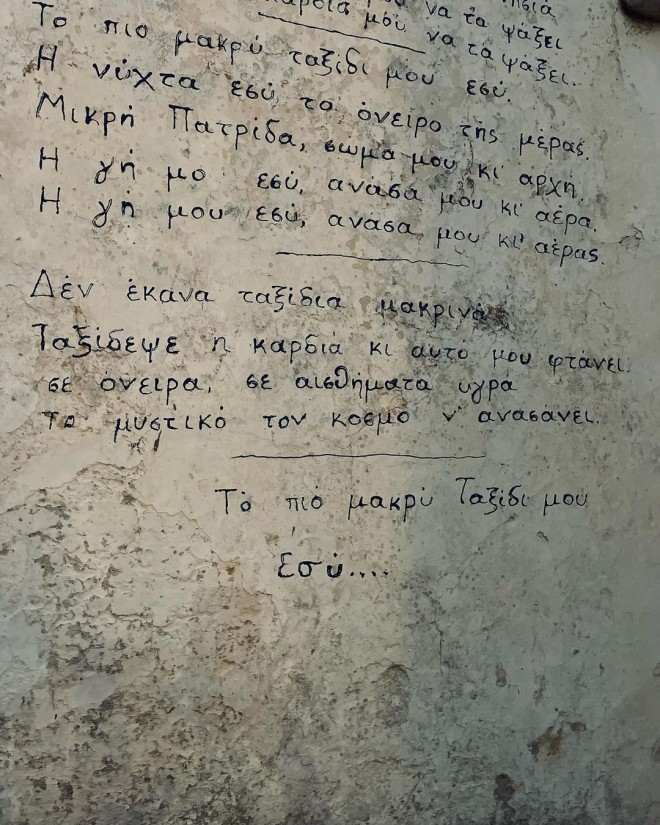 μου να τα ψάξει
καρδιά μου να τα ψάξει.
Το πιο μακρύ ταξίδι μου εσύ.
Η νύχτα εσύ, το όνειρο της μέρας.
Μικρή Πατρίδα, σώμα μου κι' αρχή.
Η γή μο εσύ, ανάσα μου κι' αέρα.
Η γή μου εσύ, ανάσα μου κι' αέρας.
Δέν έκανα ταξίδια μακρινά
Ταξίδεψε η καρδιά κι αυτό μου φτάνει.
σε όνειρα, σε αισθήματα υγρά
το μυστικό τον κοσμο ν' ανασάνει.
Τό πιό μακρύ Ταξίδι μου
Εσύ....